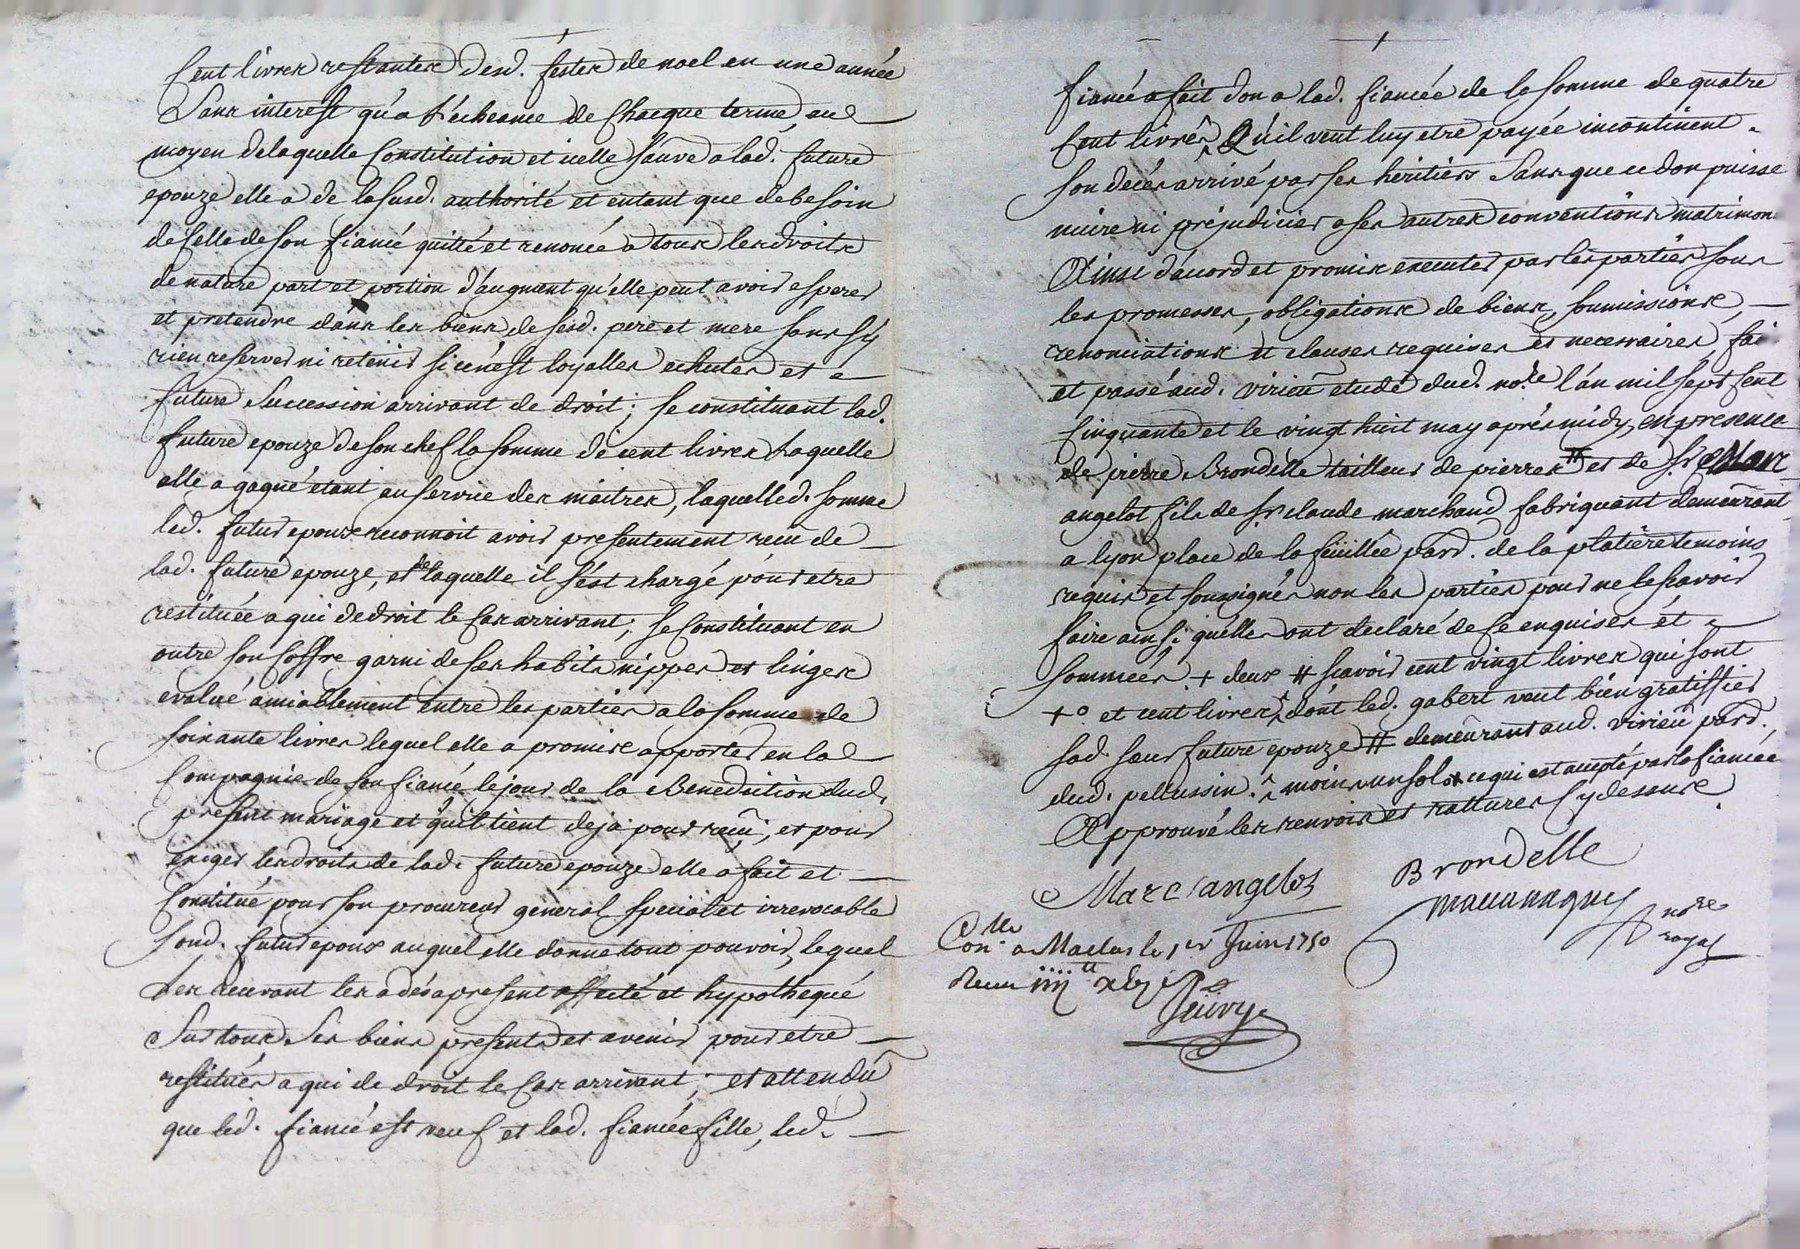 Cent livres restantes desd. festes de noel en une année
Sans interest qu'a l'écheance de Chacque terme, au
moyen de laquelle Constitution et icelle sauve a lad. future
epouze elle a de la susd. authorité et entant que de besoin
de Celle de son fiancé quitté et renoncé a tous les droits
de nature part et portion d'augment qu'elle peut avoir esperer
et pretendre dans les biens de sesd. pere et mere sans s'y
rien reserver ni retenir si ce n'est loyalles echutes et a
future Succession arrivant de droit; se constituant lad.
future epouze de son chef la somme de cent livres Laquelle
elle a gagné etant au service des maitres, laquelled. somme
led. futur epoux reconnoit avoir presentement receu de
lad. future epouze, et de laquelle il s'est chargé pour etre
restituée a qui de droit le Cas arrivant; se Constituant en
outre son Coffre garni de ses habits nippes et linges
evalué amiablement entre les parties a la somme de
soixante livres lequel elle a promis apporter en la
Compagnie de son fiancé le jour de la Benediction dud.
présent mariage et qu'il tient deja pour receu; et pour
exiger les droits de lad. future epouze elle a fait et
Constitué pour son procureur general special et irrevocable
sond. futur epoux auquel elle donne tout pouvoir, lequel
les recevant les a dés a present affecté et hypothequé
Sur tous Ses biens presents et avenir pour etre
restitués a qui de droit le Cas arrivant; et attendu
que led. fiancé est veuf et lad. fiancée fille, led.
fiancé a fait don a lad. fiancée de la somme de quatre
Cent livres Qu'il veut luy etre payée incontinent
son decés arrivé par ses héritiers Sans que ce don puisse
nuire ni préjudicier a ses autres conventions matrimon
Ainsi d'acord et promis executer par les parties sous
les promesses, obligations de biens, soumissions,
renonciations et clauses requises et necessaires, fai
et passé aud. virieu etude dud. nore l'an mil sept Cent
Cinquante et le vingt huit may aprés midy, en presence
de pierre Brondelle tailleur de pierres # et de sr Marc
angelot fils de sr claude marchand fabriquant demeurant
a lyon place de la feüillée pard. de la platiere temoins
requis et soussignés non les parties pour ne le sçavoir
faire ainsi quelles ont declaré de ce enquises et
sommées + deux # sçavoir cent vingt livres qui sont
+o et cent livres dont led. gabert veut bien gratiffier
sad. soeur future epouze # demeurant aud. virieu pard.
dud. pellussin. moins un sol ce qui est accepté par la fiancée
Approuvé les renvois et rattures Cy dessus
Marc angelot
Brondelle
nore
royal
Conlle a Maclas le 1er Juin 1750